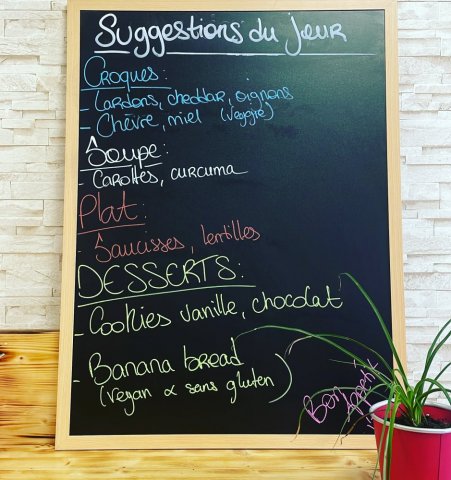 Suggestions du jour
Croques:
- Lardons, cheddar, oignons
- Chèvre, miel (veggie)
Soupe:
- Carottes, curcuma
Plat:
- Saucisses, lentilles
DESSERTS:
- Cookies vanille, chocolat
- Banana bread
(vegan & sans gluten)
Bon Appétit